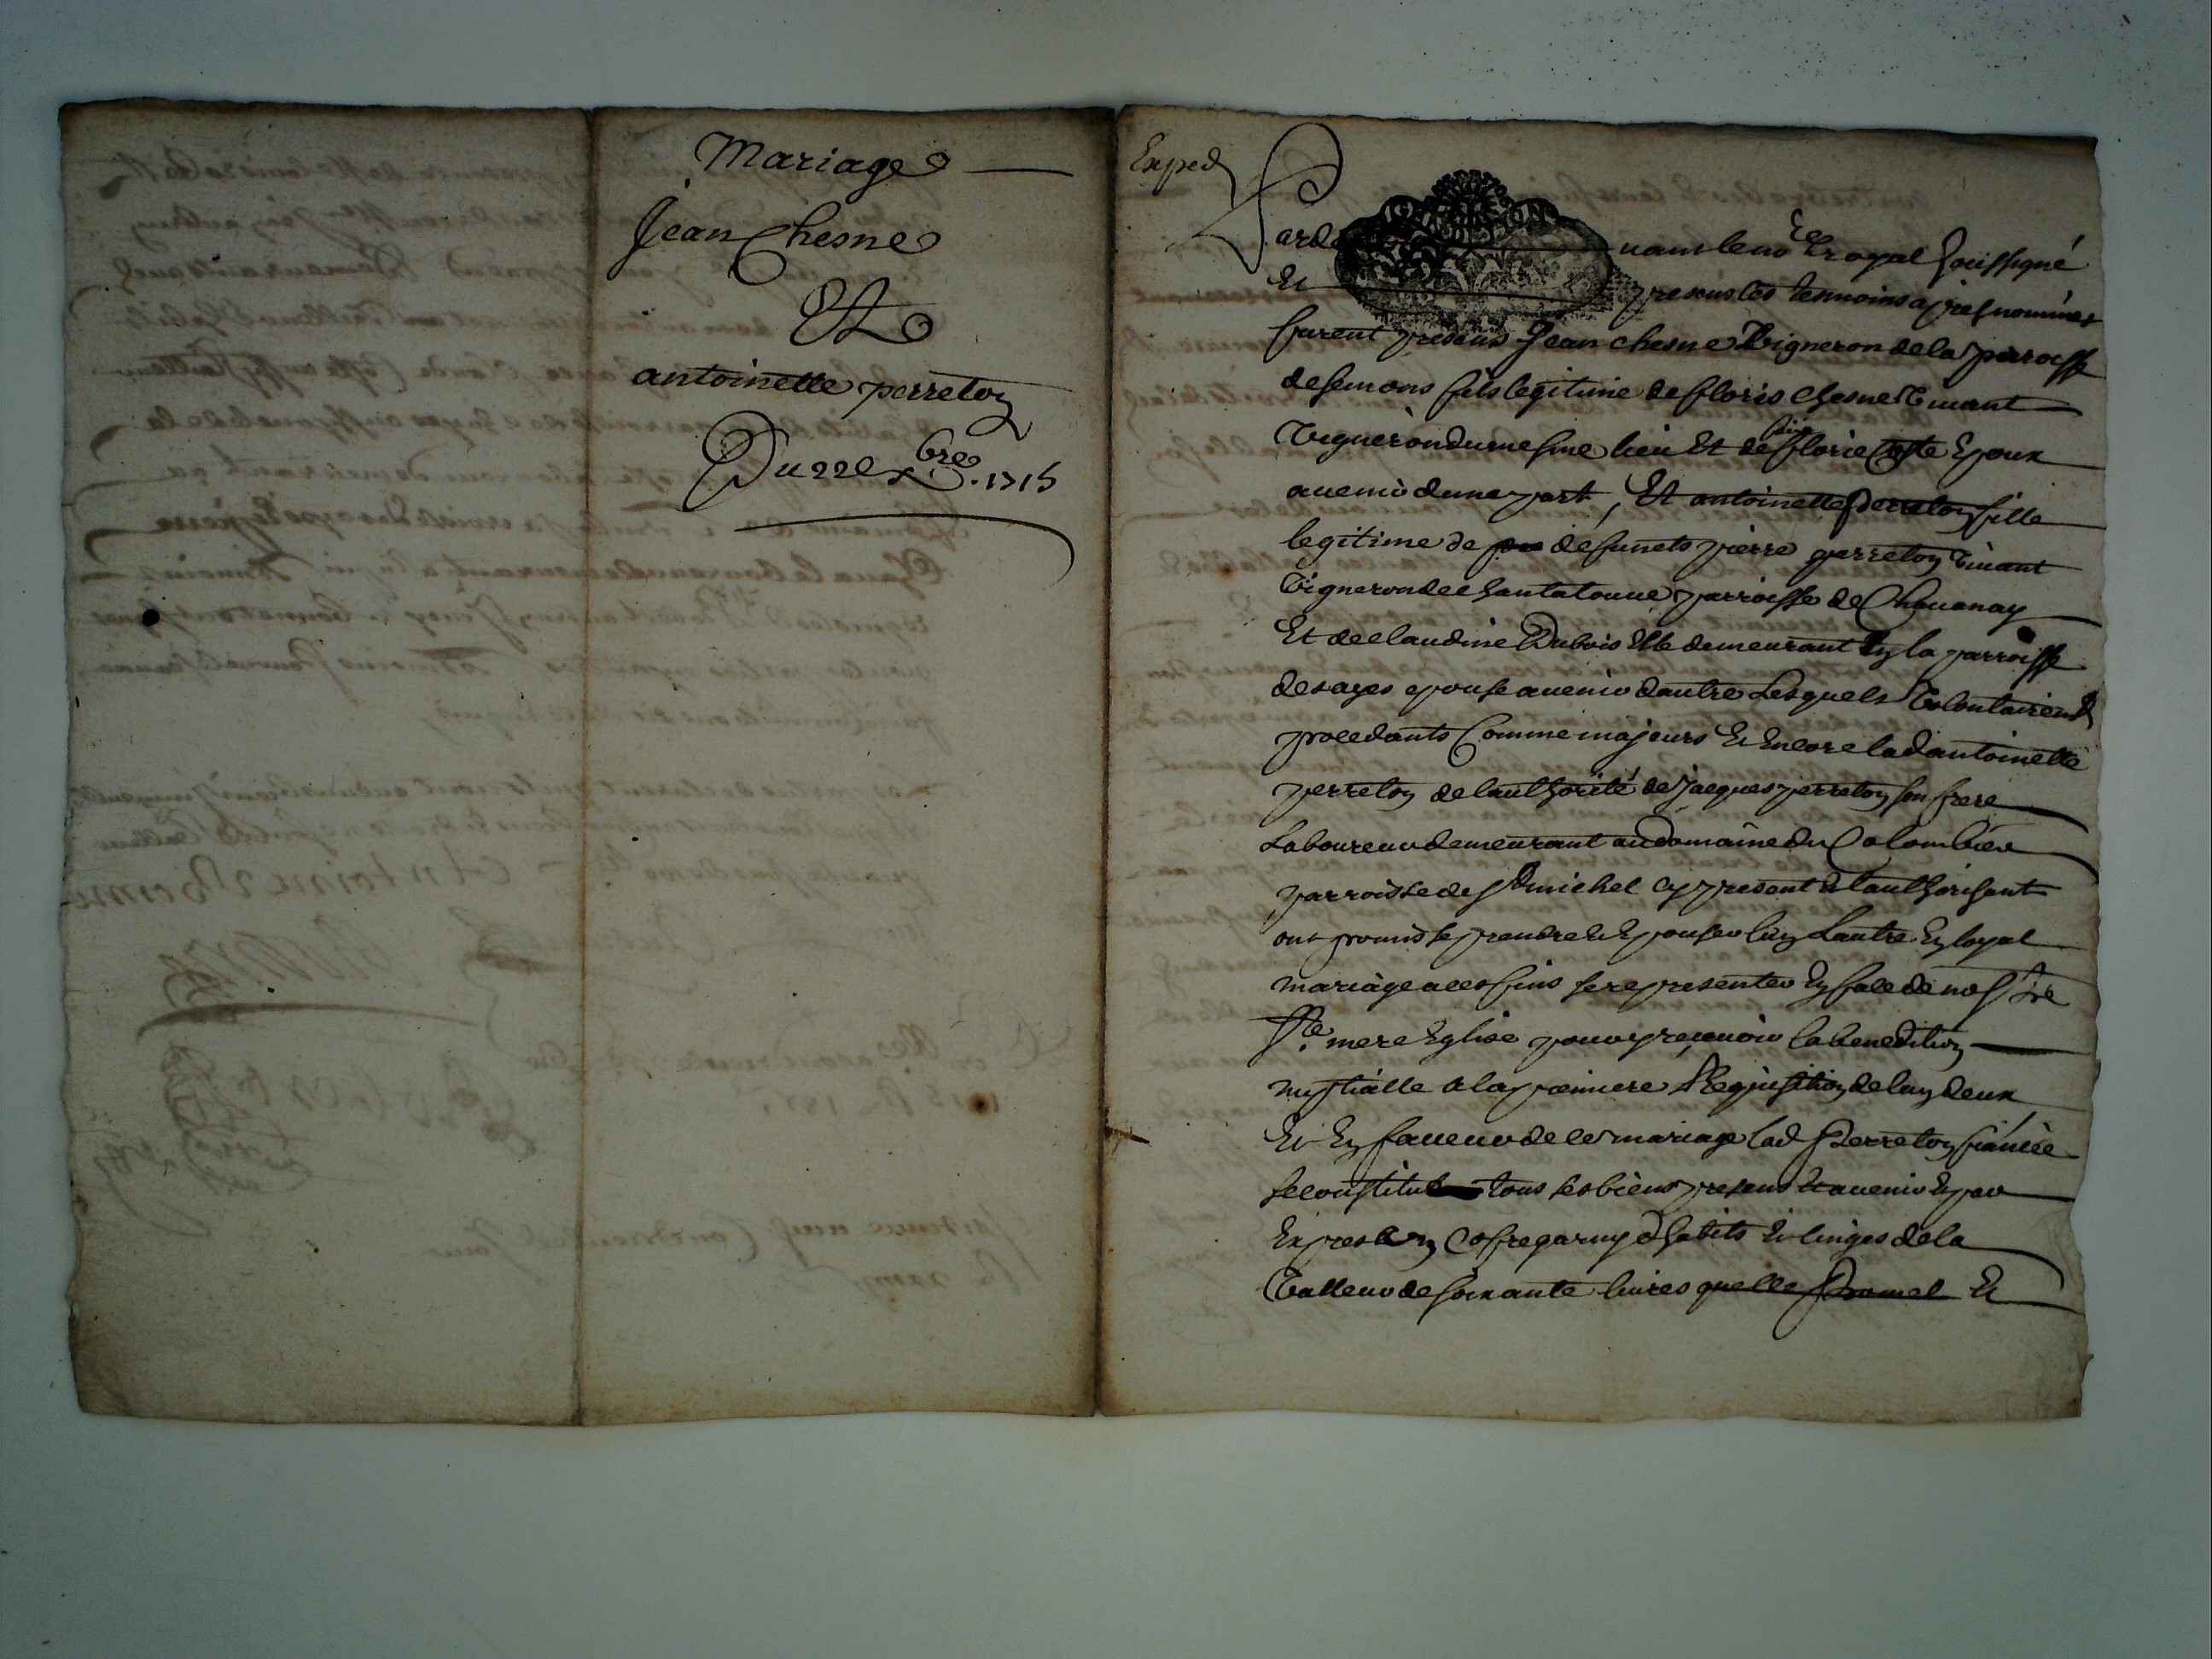 Mariage
Jean Chesne
Et
antoinette perreton
Du 22e xbre 1715
Exped
Pardevant le no.re Royal soussigné
Et presens les tesmoins apres nommés
furent presens Jean chesne Vigneron de la parroisse
de semons fils legitime de floris chesne Vivant
Vigneron du mesme lieu Et de florie Coste Epoux
avenir dune part, Et antoinette Perreton fille
legitime de defunets pierre perreton Vivant
Vigneron de chantalouue parroisse de Chauanay
Et de claudine Dubois Elle demeurant En la parroisse
de rages epouse avenir dautre Lesquels Volontairemt
procedants Comme majeurs Et Encore lad antoinette
perreton de lauthorité de Jacques perreton son frere
Laboureur demeurant au domaine du Colombier
parroisse de St michel cy present Et lauthorisant
ont promis se prendre Et Epouser lun Lautre En loyal
mariage a ces fins se representer En face de nostre
Ste mere Eglise pour y recevoir la benediction
nuptialle a la premiere Requisition de lun deux
Et En faveur de ce mariage lad Perreton fiancée
se constitue tous ses biens presens Et avenir Et par
Expres Un Coffre garny dhabits Et linges de la
Valleur de soixante livres quelle Promet Et